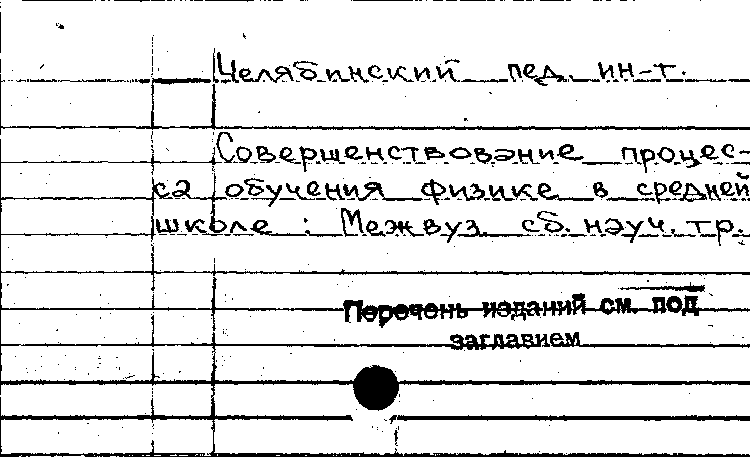 Челябинский пед. ин-т.
Совершенствование процес-
са обучения физике в средней
школе : Межвуз. сб. науч. тр.
Перечень изданий см. под
заглавием